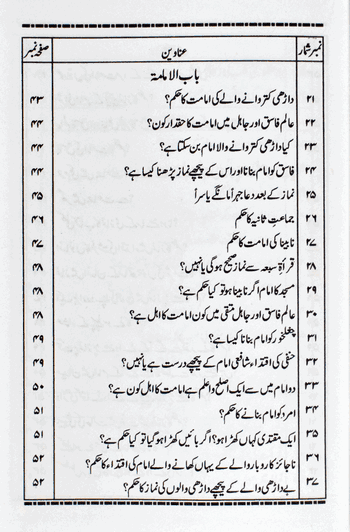 نمبر شمار عناوین صفحہ نمبر
باب الامامۃ
۲۱ داڑھی کتروانے والے کی امامت کا حکم؟ ۴۳
۲۲ عالم فاسق اور جاہل میں امامت کا حقدار کون؟ ۴۴
۲۳ کیا داڑھی کتروانے والا امام بن سکتا ہے؟ ۴۴
۲۴ فاسق کو امام بنانا اور اس کے پیچھے نماز پڑھنا کیسا ہے؟ ۴۴
۲۵ نماز کے بعد دعا جہراً مانگے یا سراً ۴۵
۲۶ جماعتِ ثانیہ کا حکم ۴۶
۲۷ نابینا کی امامت کا حکم ۴۷
۲۸ قرأۃِ سبعہ سے نماز صحیح ہوگی یا نہیں؟ ۴۸
۲۹ مسجد کا امام اگر نابینا ہو تو کیا حکم ہے؟ ۴۸
۳۰ عالم فاسق اور جاہل متقی میں کون امامت کا اہل ہے؟ ۴۸
۳۱ چغلخور کو امام بنانا کیسا ہے؟ ۴۹
۳۲ حنفی کی اقتداء شافعی امام کے پیچھے درست ہے یا نہیں؟ ۴۹
۳۳ دو امام میں سے ایک اصلح و اعلم ہے امامت کا اہل کون ہے؟ ۵۰
۳۴ امرد کو امام بنانے کا حکم؟ ۵۱
۳۵ ایک مقتدی کہاں کھڑا ہو؟ اگر بائیں کھڑا ہو گیا تو کیا حکم ہے؟ ۵۱
۳۶ ناجائز کاروبار والے کے یہاں کھانے والے امام کی اقتداء کا حکم؟ ۵۲
۳۷ بے داڑھی والے کے پیچھے داڑھی والوں کی نماز کا حکم؟ ۵۲